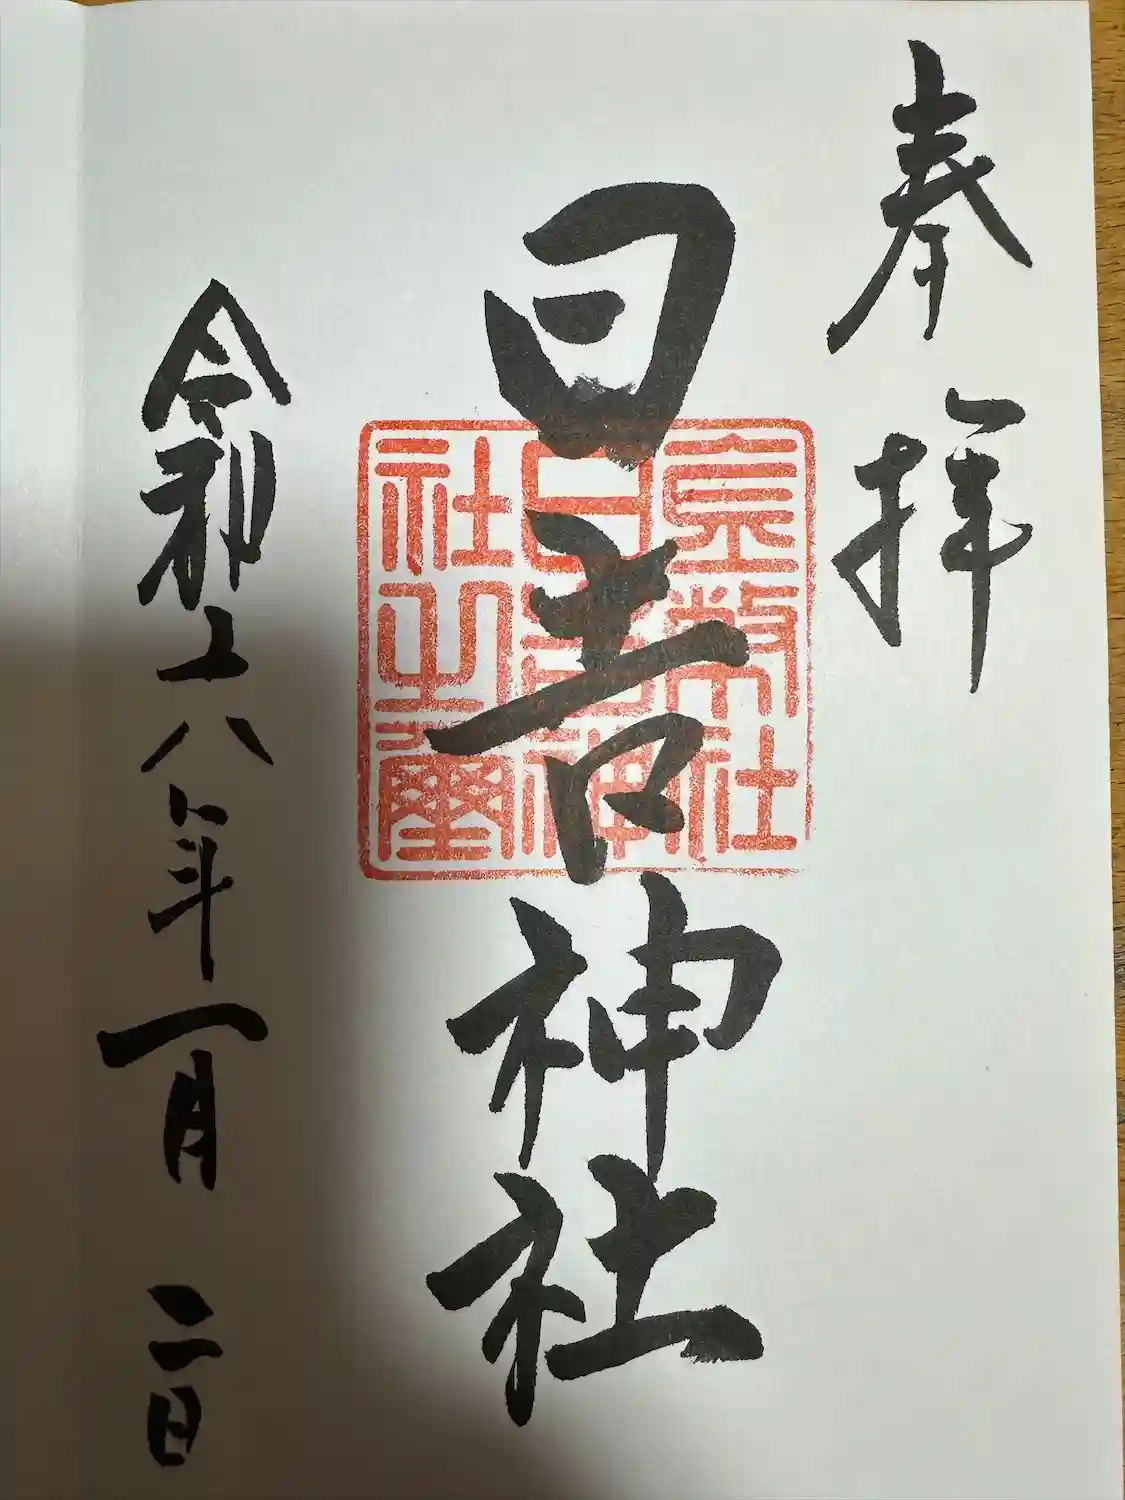 奉拝
日吉神社
令和六年一月二日
金幣社
日吉神
社之璽